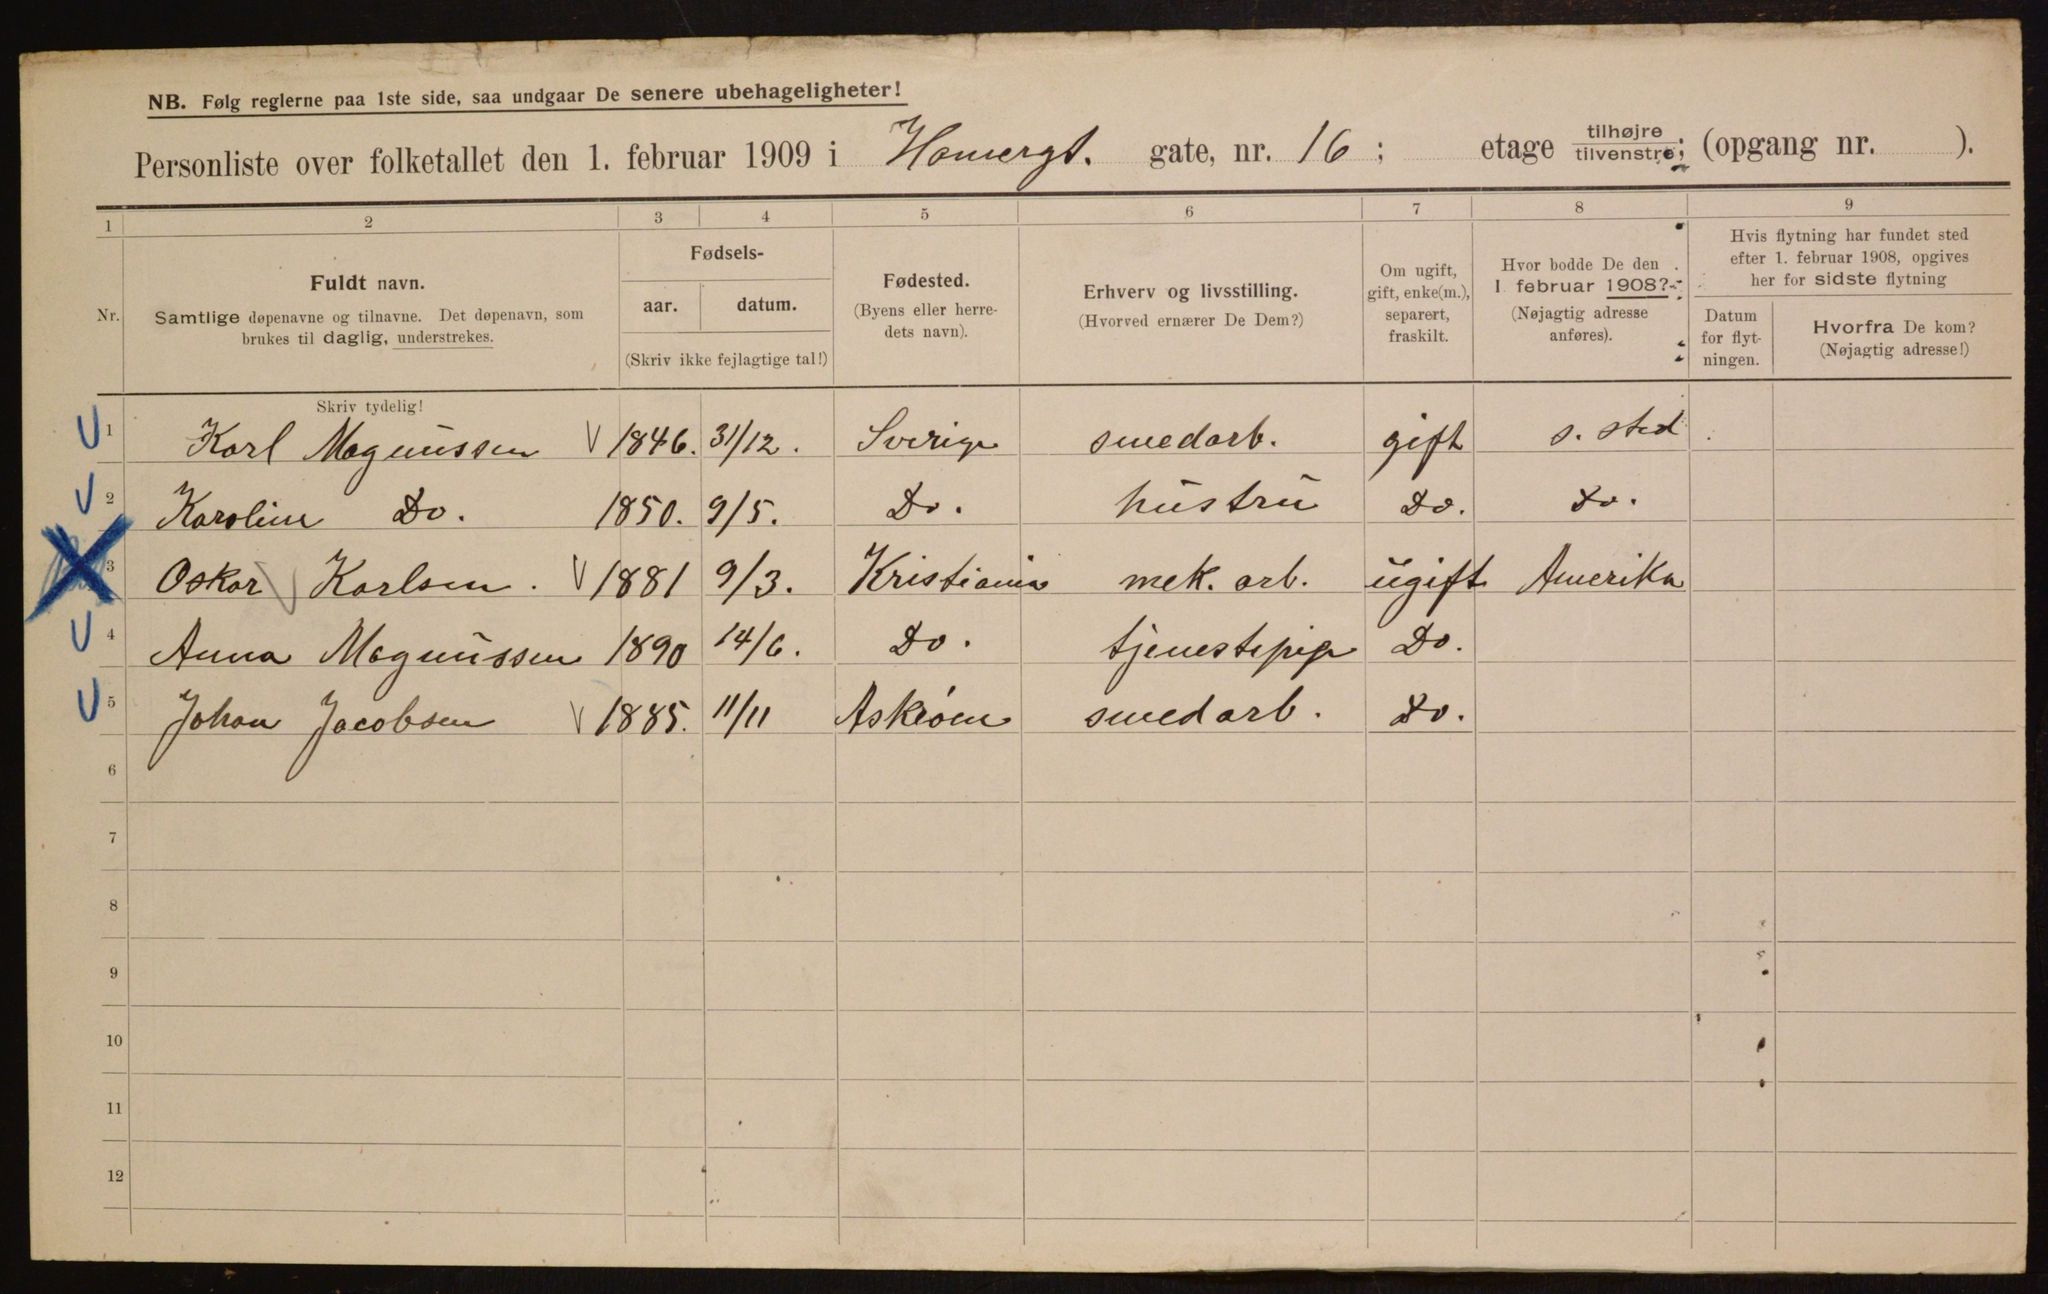 NB. Følg reglerne paa 1ste side, saa undgaar De senere ubehageligheter!
Personliste over folketallet den 1. februar 1909 i Hamergt. gate, nr. 16; etage tilhøjre tilvenstre; (opgang nr. ).
1 2 3 4 5 6 7 8 9
Nr.
Fuldt navn.
Samtlige døpenavne og tilnavne. Det døpenavn, som
brukes til daglig, understrekes.
Fødsels-
aar. datum.
(Skriv ikke fejlagtige tal!)
Fødested.
(Byens eller herre-
dets navn).
Erhverv og livsstilling.
(Hvorved ernærer De Dem?)
Om ugift,
gift, enke(m.),
separert,
fraskilt.
Hvor bodde De den
1 februar 1908?
(Nøjagtig adresse
anføres).
Hvis flytning har fundet sted
efter 1. februar 1908, opgives
her for sidste flytning
Datum
for flyt-
ningen.
Hvorfra De kom?
(Nøjagtig adresse!)
Skriv tydelig!
1 Karl Magnussen 1846. 31/12. Sverige smedarb. gift s. sted
2 Karoline Do. 1850. 9/5. Do. hustru Do. Do.
3 Oskar Karlsen. 1881 9/3. Kristiania mek. arb. ugift Amerika
4 Anna Magnussen 1890 14/6. Do. tjenestepige Do.
5 Johan Jacobsen 1885. 11/11 Askiøm smedarb. Do.
6
7
8
9
10
11
12